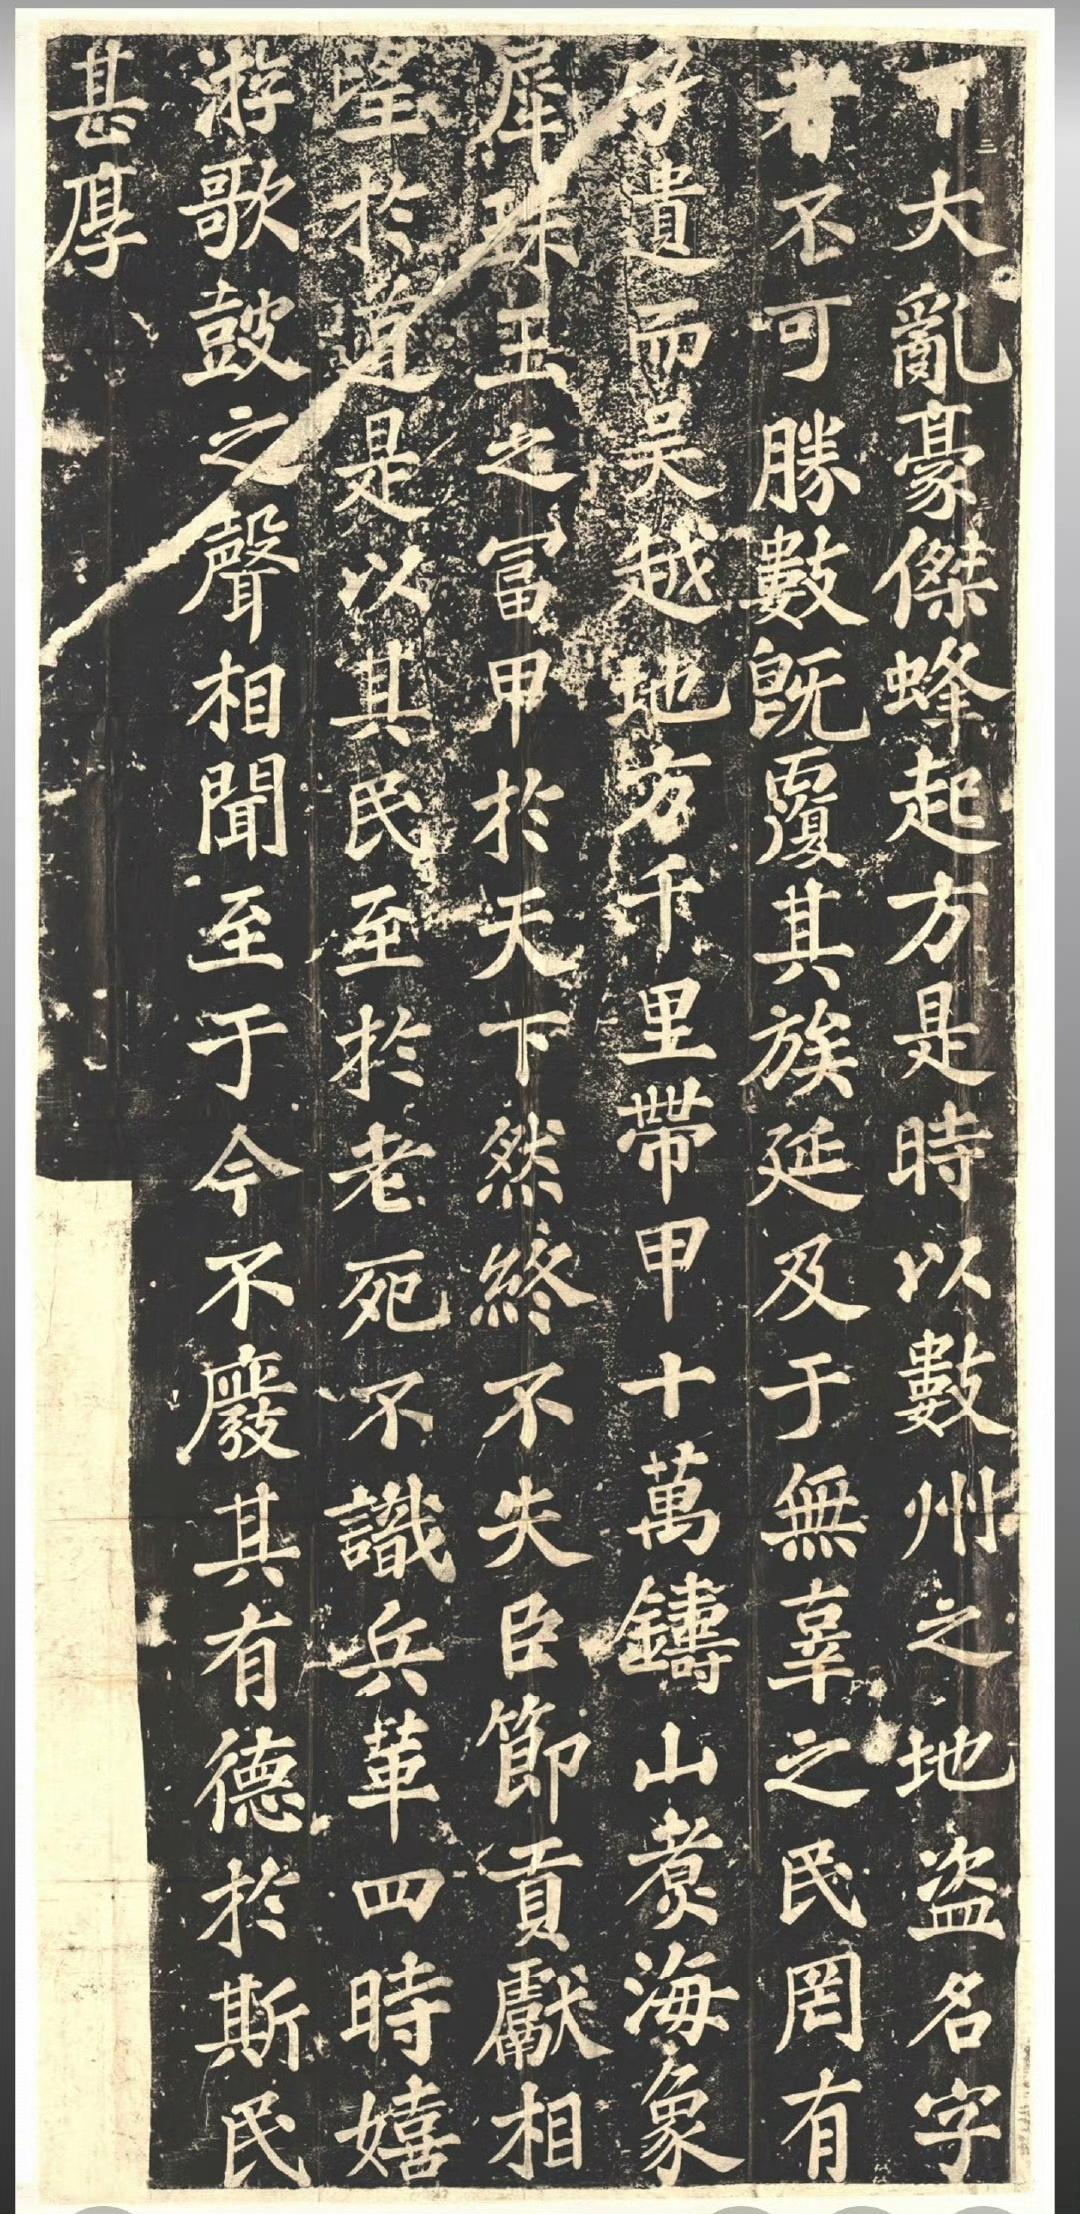 下大亂豪傑蜂起方是時以數州之地盜名字
者不可勝數既覆其族延及于無辜之民罔有
孑遺而吳越地方千里帶甲十萬鑄山煮海象
犀珠玉之富甲於天下然終不失臣節貢獻相
望於道是以其民至於老死不識兵革四時嬉
游歌鼓之聲相聞至于今不廢其有德於斯民
甚厚